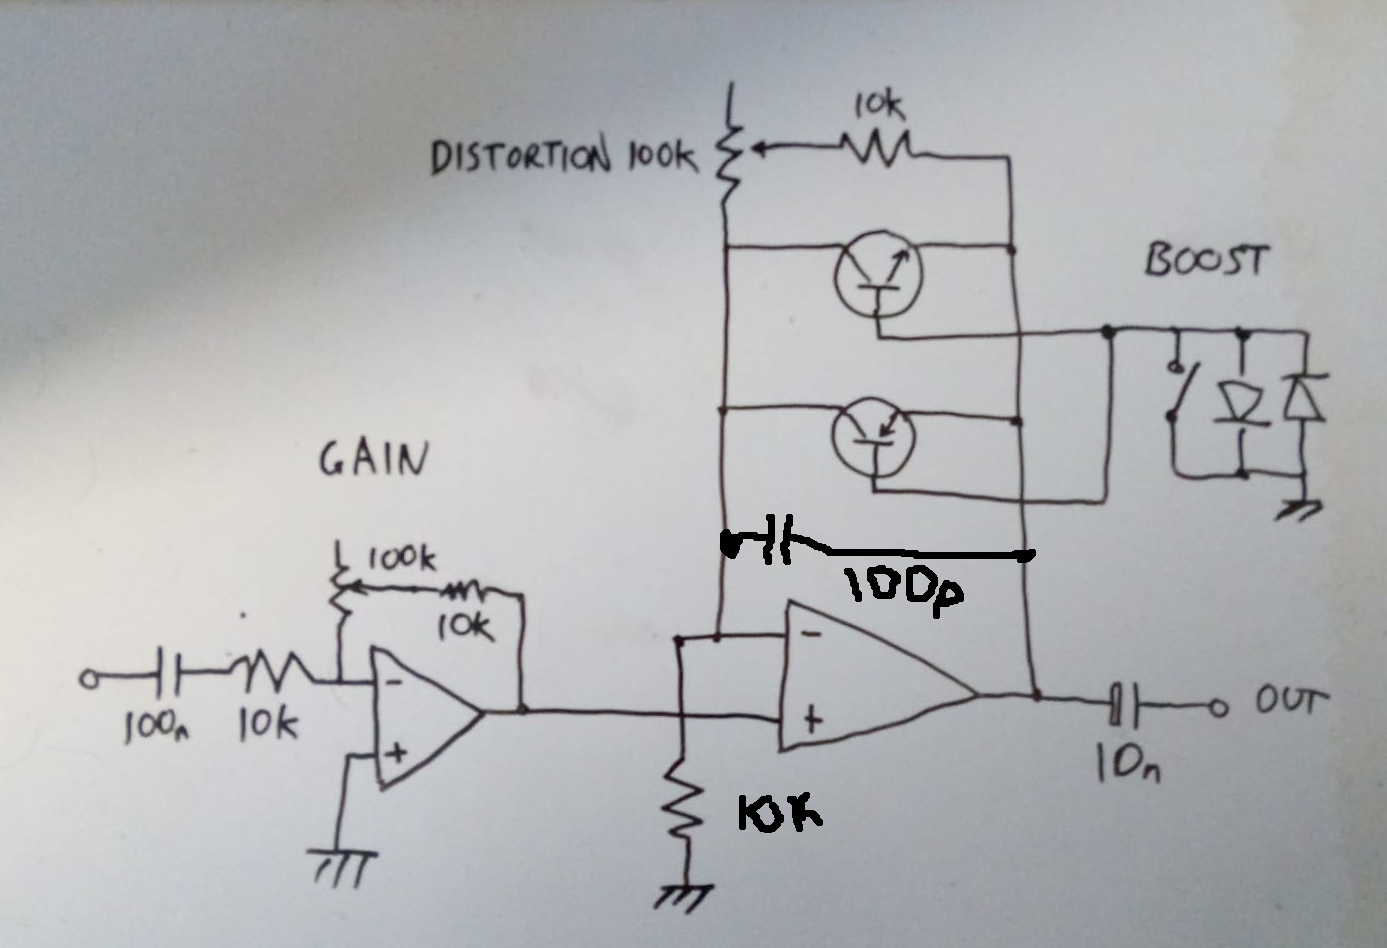 10k
DISTORTION 100k
BOOST
GAIN
100k
10k
100p
-
-
100n
10k
+
+
OUT
10n
10k